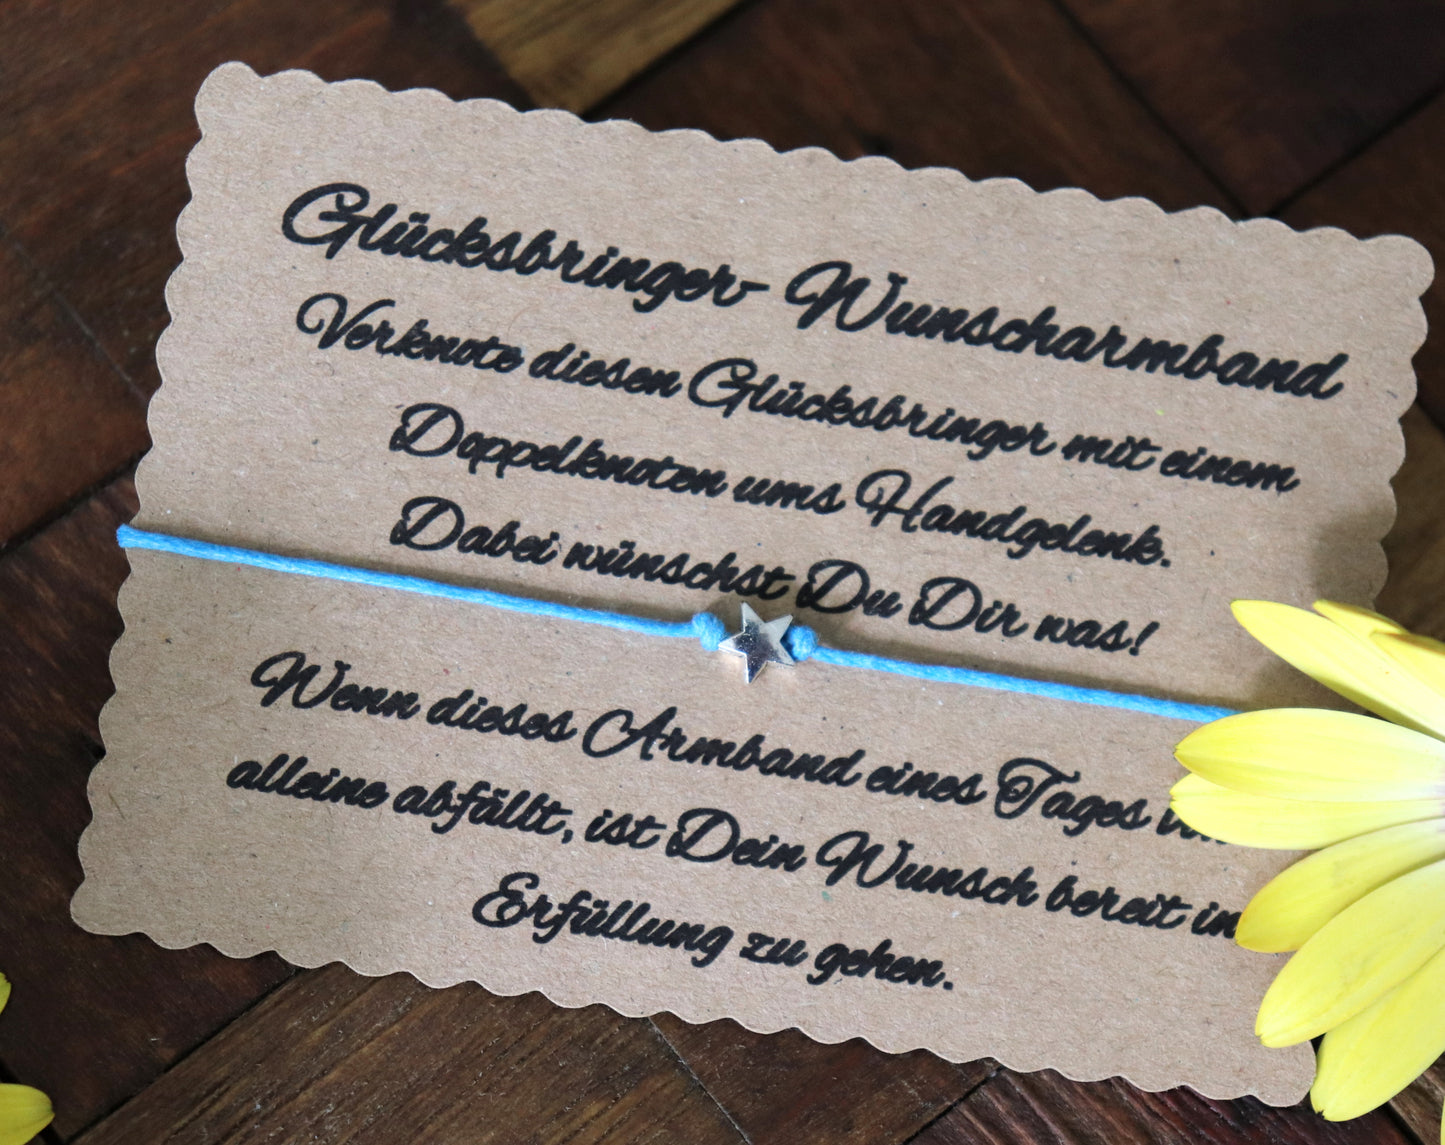 Glücksbringer- Wunscharmband
Verknote diesen Glücksbringer mit einem
Doppelknoten ums Handgelenk.
Dabei wünschst Du Dir was!
Wenn dieses Armband eines Tages
alleine abfällt, ist Dein Wunsch bereit in
Erfüllung zu gehen.